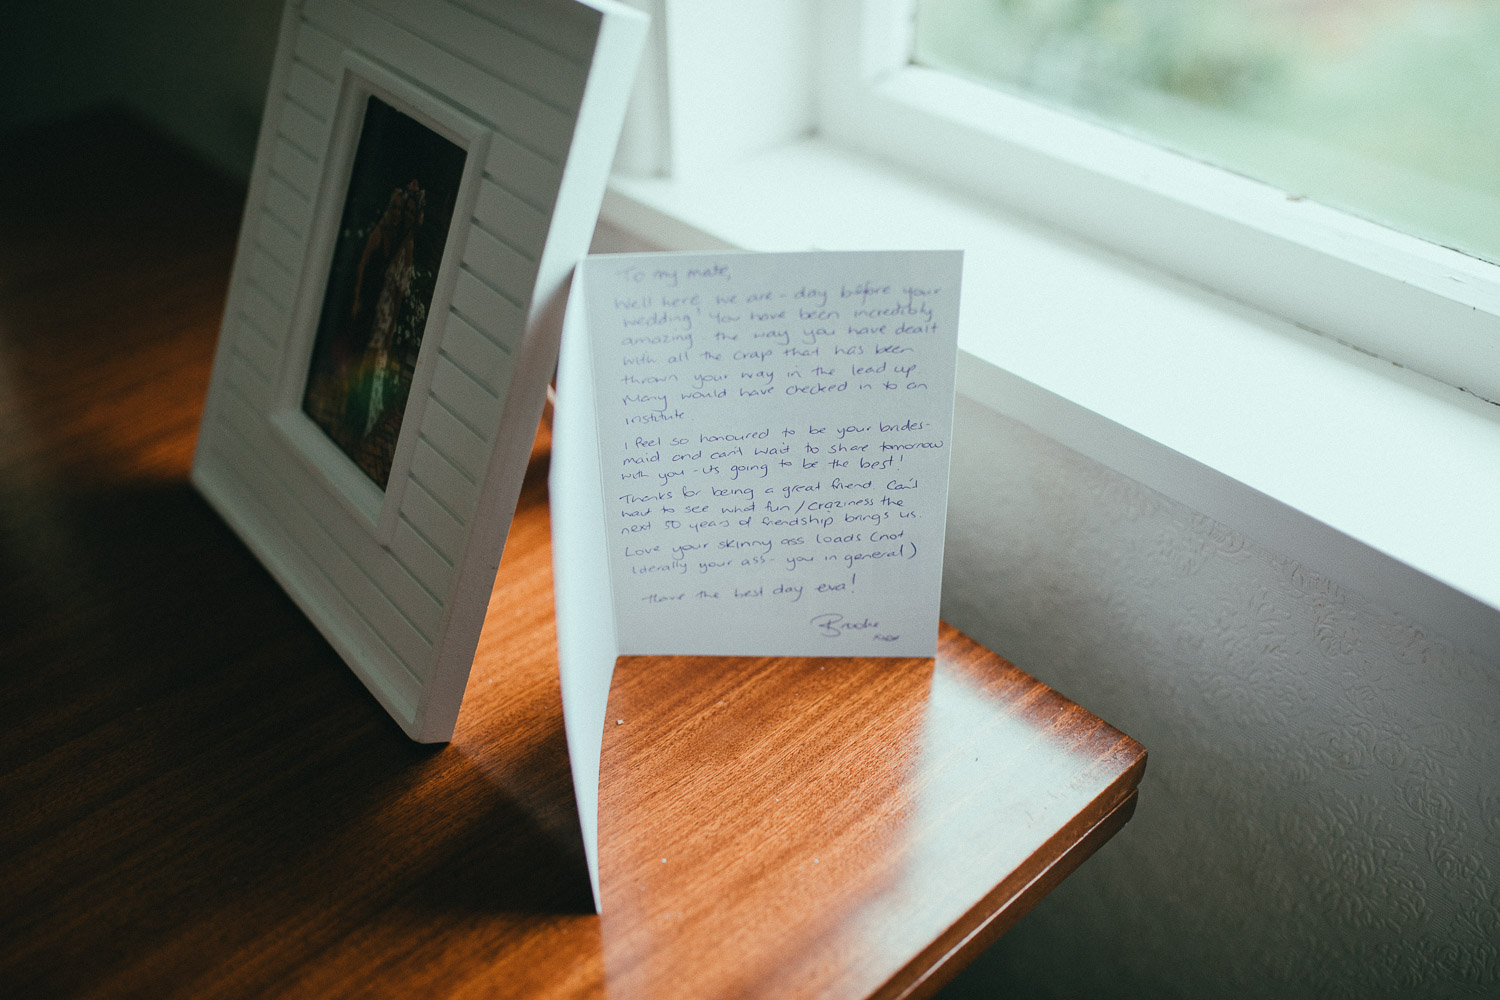 To my mate,
Well here we are - day before your
wedding! You have been incredibly
amazing the way you have dealt
with all the crap that has been
thrown your way in the lead up.
Many would have checked in to an
institute
I feel so honoured to be your brides-
maid and can't wait to share tomorrow
with you - its going to be the best!
Thanks for being a great friend. Can't
wait to see what fun / craziness the
next 50 years of friendship brings us.
Love your skinny ass loads (not
literally your ass - you in general)
Have the best day eva!
Brooke